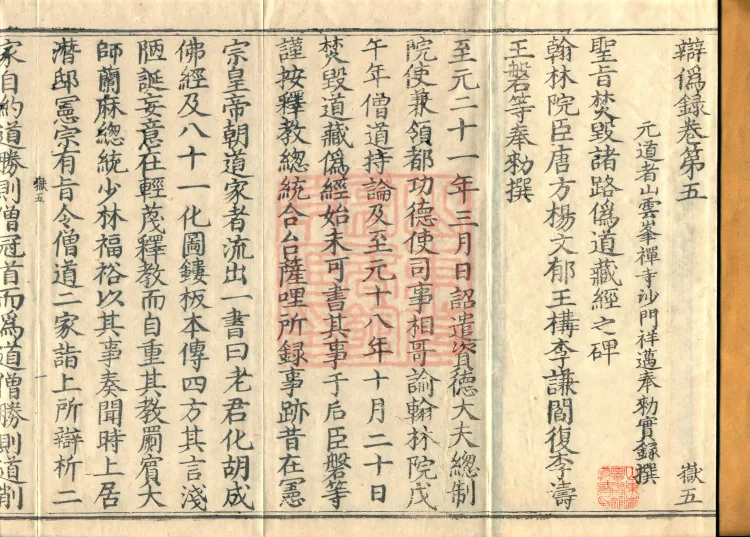 辯偽録卷第五 嶽五
元道者山雲峯禪寺沙門祥邁奉勑實録撰
聖旨焚毀諸路偽道藏經之碑
翰林院臣唐方楊文郁王構李謙閻復李濤
王磐等奉勑撰
至元二十一年三月日詔遣資德大夫總制
院使兼領都功德使司事相哥諭翰林院戊
午年僧道持論及至元十八年十月二十日
焚毀道藏偽經始末可書其事于后臣磐等
謹按釋教總統合台薩哩所録事跡昔在憲
宗皇帝朝道家者流出一書曰老君化胡成
佛經及八十一化圖鏤板本傳四方其言淺
陋誕妄意在輕蔑釋教而自重其教罽賓大
師蘭麻總統少林福裕以其事奏聞時上居
潛邸憲宗有旨令僧道二家詣上所辯析二
嶽五 一
家自約道勝則僧冠首而為道僧勝則道削